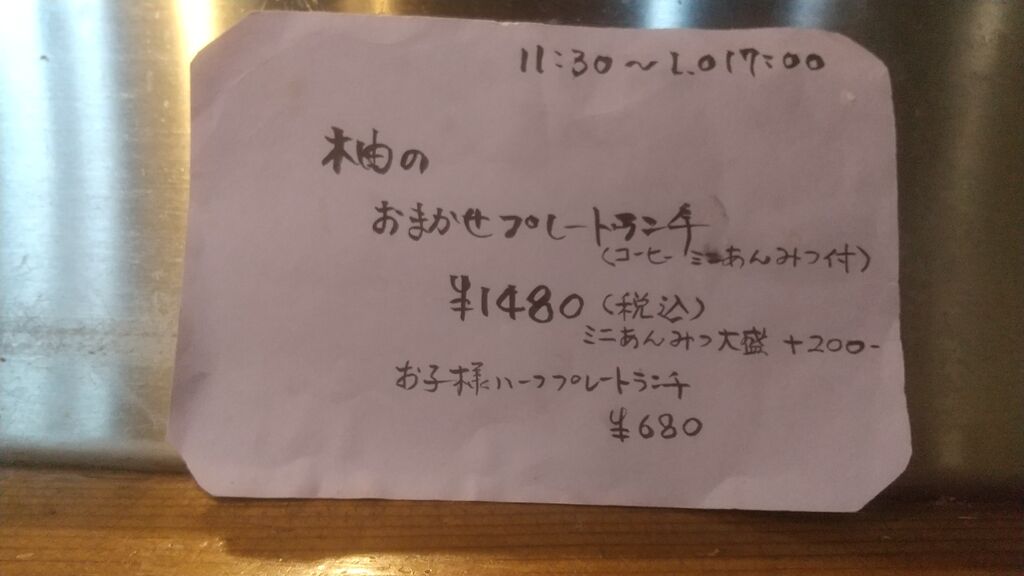 11:30〜L.O17:00
柚の
おまかせプレートランチ
(コーヒー ミニあんみつ付)
¥1480(税込)
ミニあんみつ大盛 +200-
お子様ハーフプレートランチ
¥680